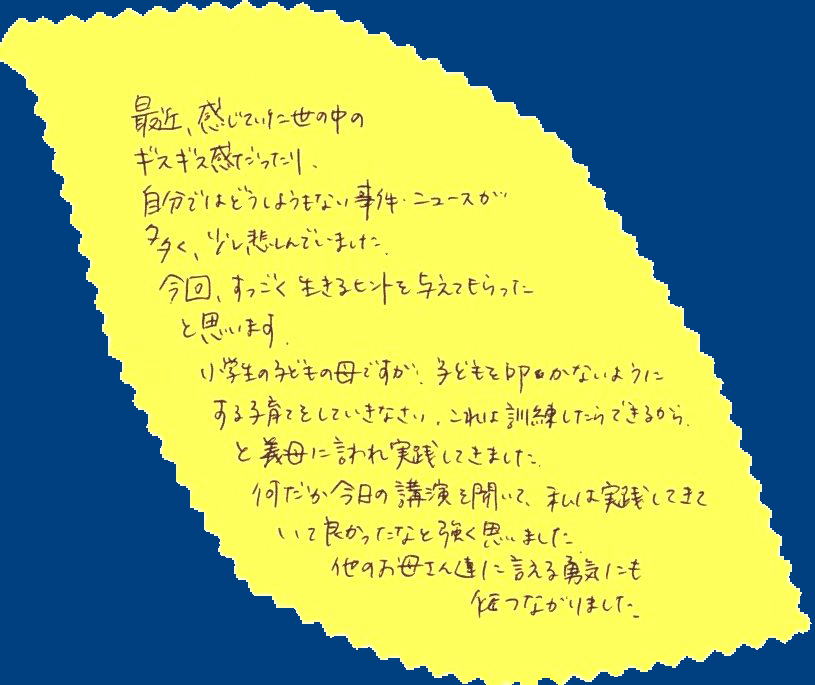 最近、感じていた世の中の
ギスギス感だったり、
自分ではどうしようもない事件・ニュースが
多く、少し悲しんでいました。
今回、すっごく生きるヒントを与えてもらった
と思います。
小学生の子どもの母ですが、子どもを叩かないように
する子育てをしていきなさい。これは訓練したらできるから。
と義母に言われ実践してきました。
何だか今日の講演を聞いて、私は実践してきて
いて良かったなと強く思いました。
他のお母さん達に言える勇気にも
つながりました。